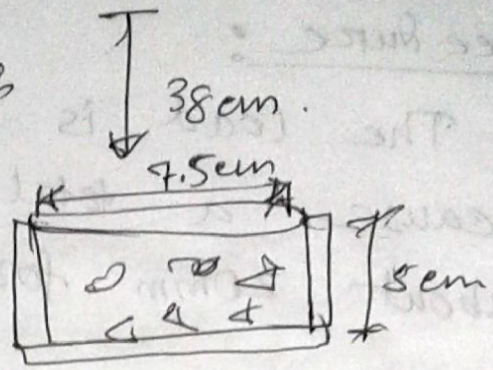 38cm.
7.5cm
5cm